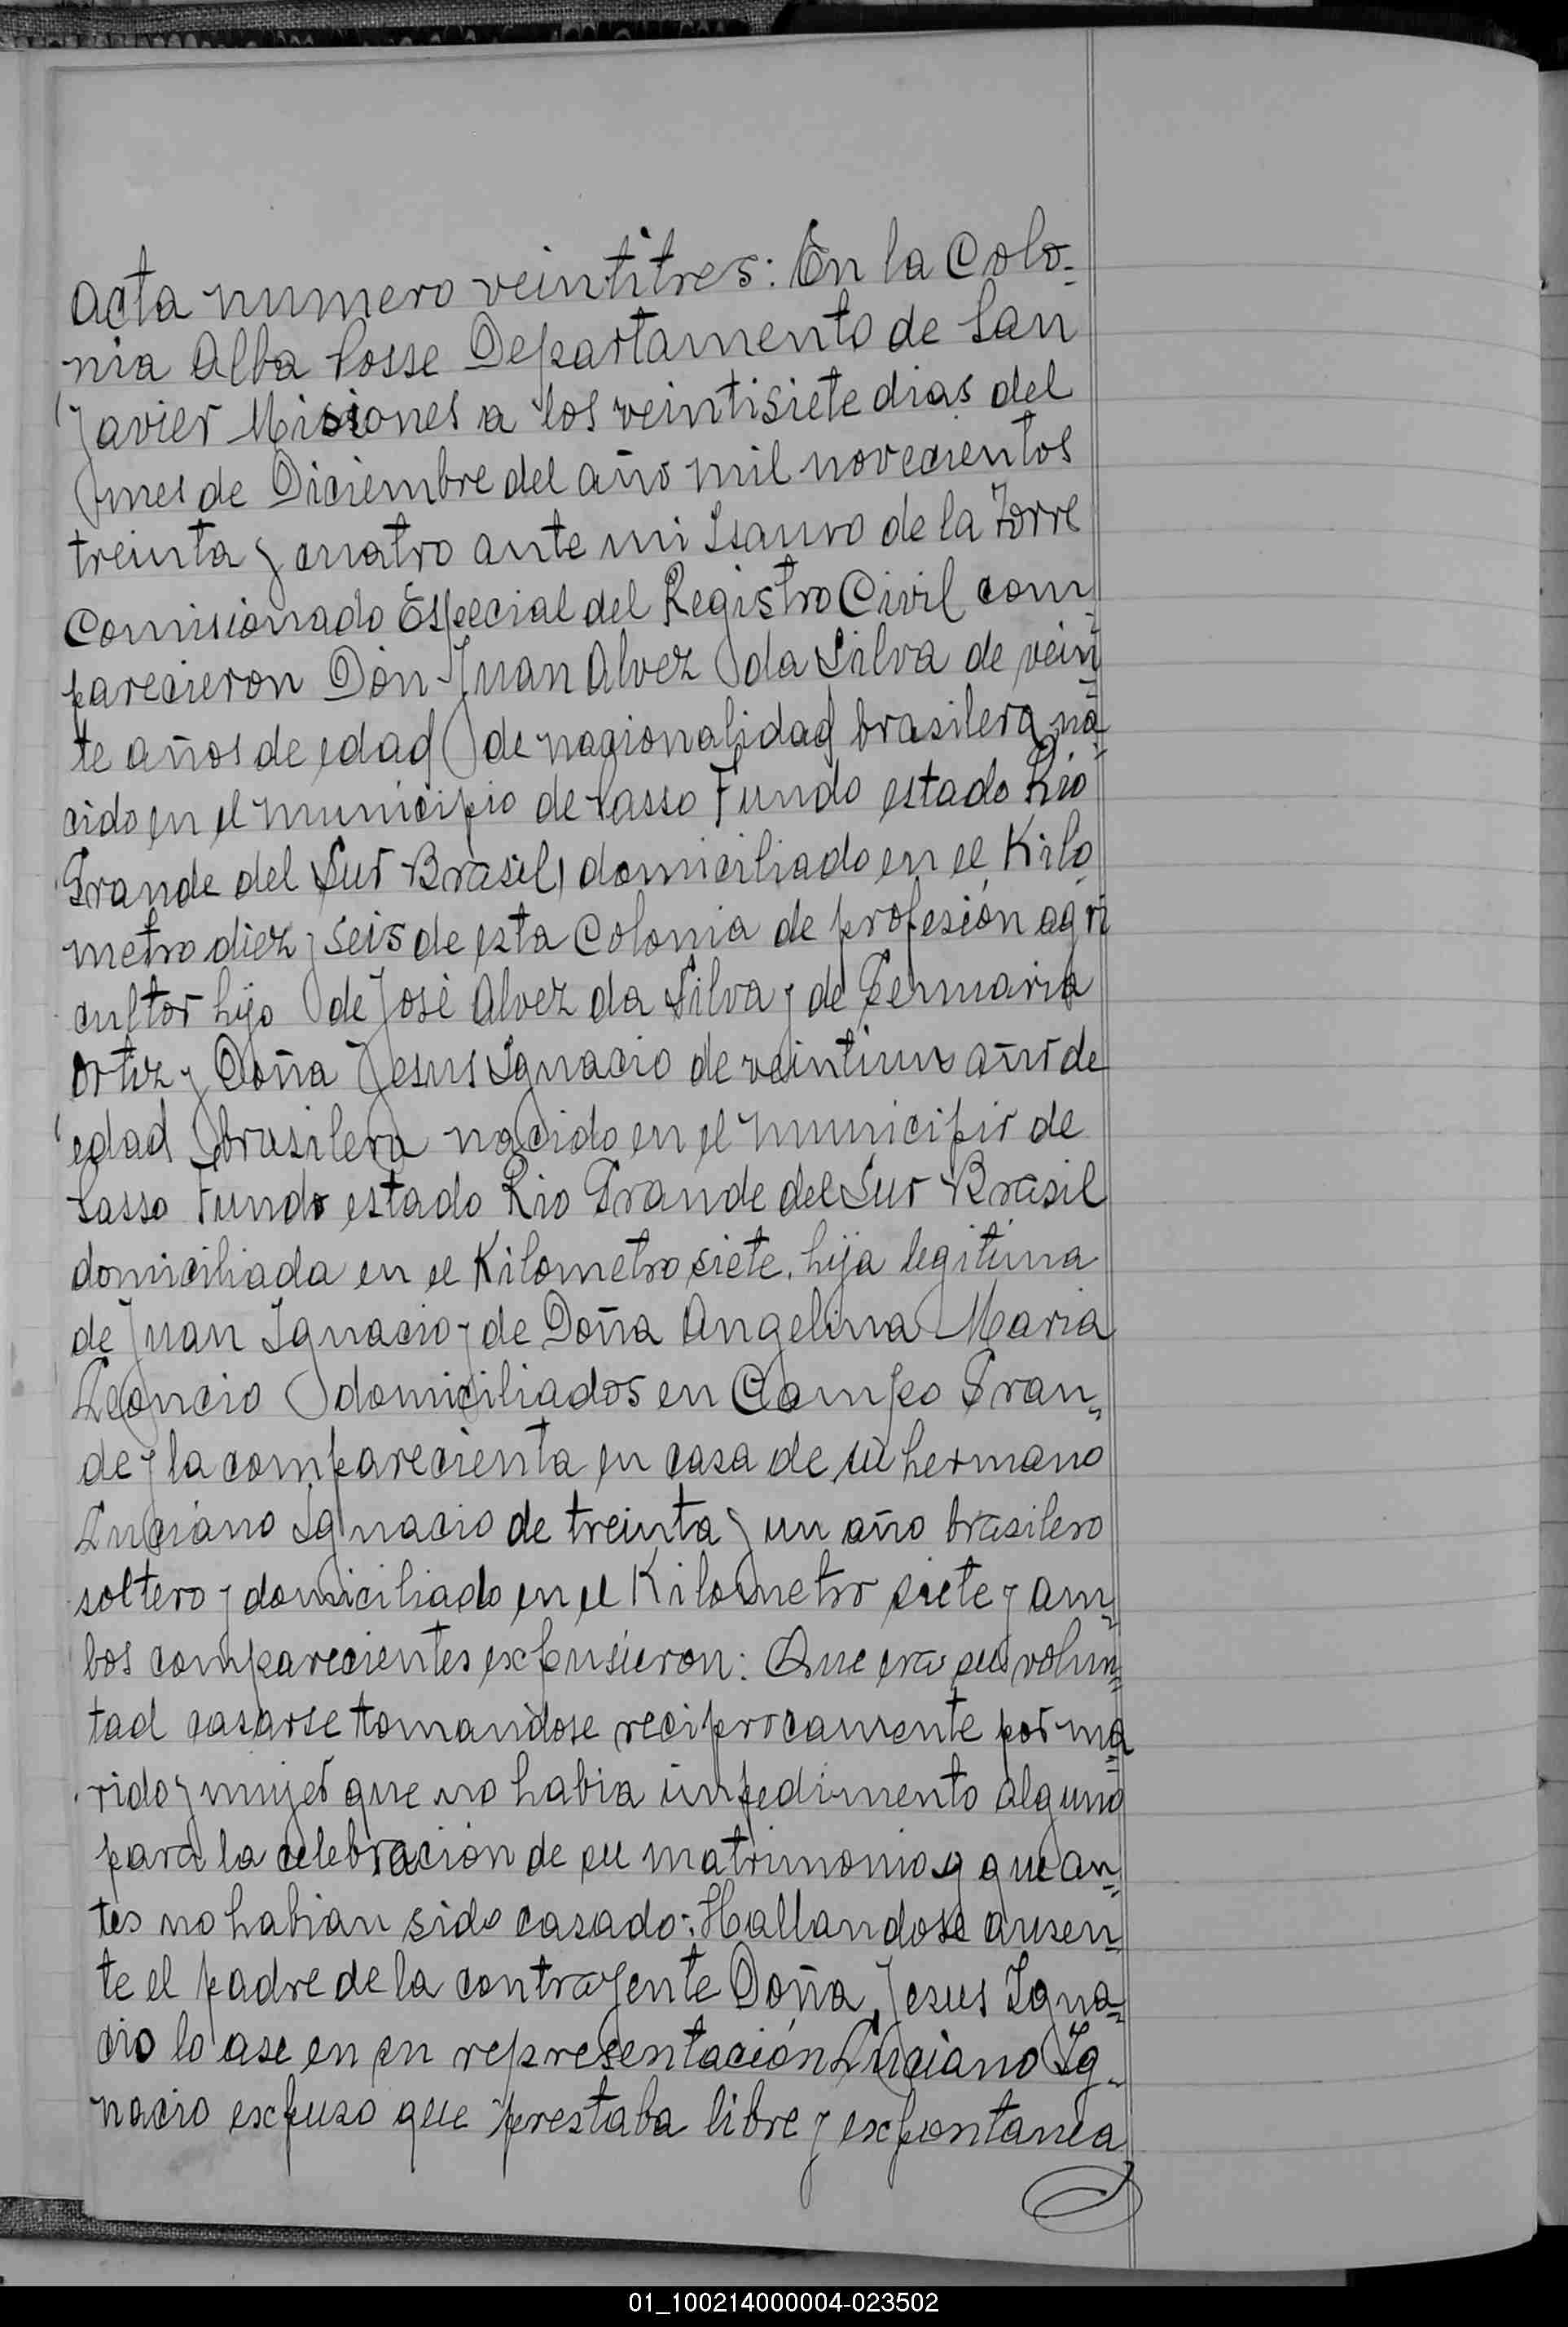 Acta numero veintitres: En la Colo-
nia Alba Posse Departamento de San
Javier Misiones a los veintisiete dias del
mes de Diciembre del año mil novecientos
treinta y cuatro ante mi Isauro de la Torre
Comisionado Especial del Registro Civil com-
parecieron Don Juan Alvez da Silva de vein-
te años de edad de nacionalidad brasilera na-
cido en el municipio de Passo Fundo estado Rio
Grande del Sur Brasil, domiciliado en el Kilo-
metro diez y seis de esta Colonia de profesión agri
cultor hijo de José Alvez da Silva y de
Ortiz y Doña Jesus Ignacio de veintiun años de
edad brasilera nacido en el municipio de
Passo Fundo estado Rio Grande del Sur Brasil
domiciliada en el Kilometro siete, hija legitima
de Juan Ignacio y de Doña Angelina Maria
Leoncio domiciliados en Campo Gran-
de y la comparecienta en casa de su hermano
Luciano Ignacio de treinta y un año brasilero
soltero y domiciliado en el Kilometro siete y am-
bos comparecientes expusieron: Que era su volun-
tad casarse tomandose reciprocamente por ma-
rido y mujer que no habia impedimento alguno
para la celebración de su matrimonio y que an-
tes no habian sido casado: Hallandose ausen-
te el padre de la contrayente Doña Jesus Igna-
cio lo ase en en representación Luciano Ig-
nacio expuso que prestaba libre y expontanea
01_100214000004-023502